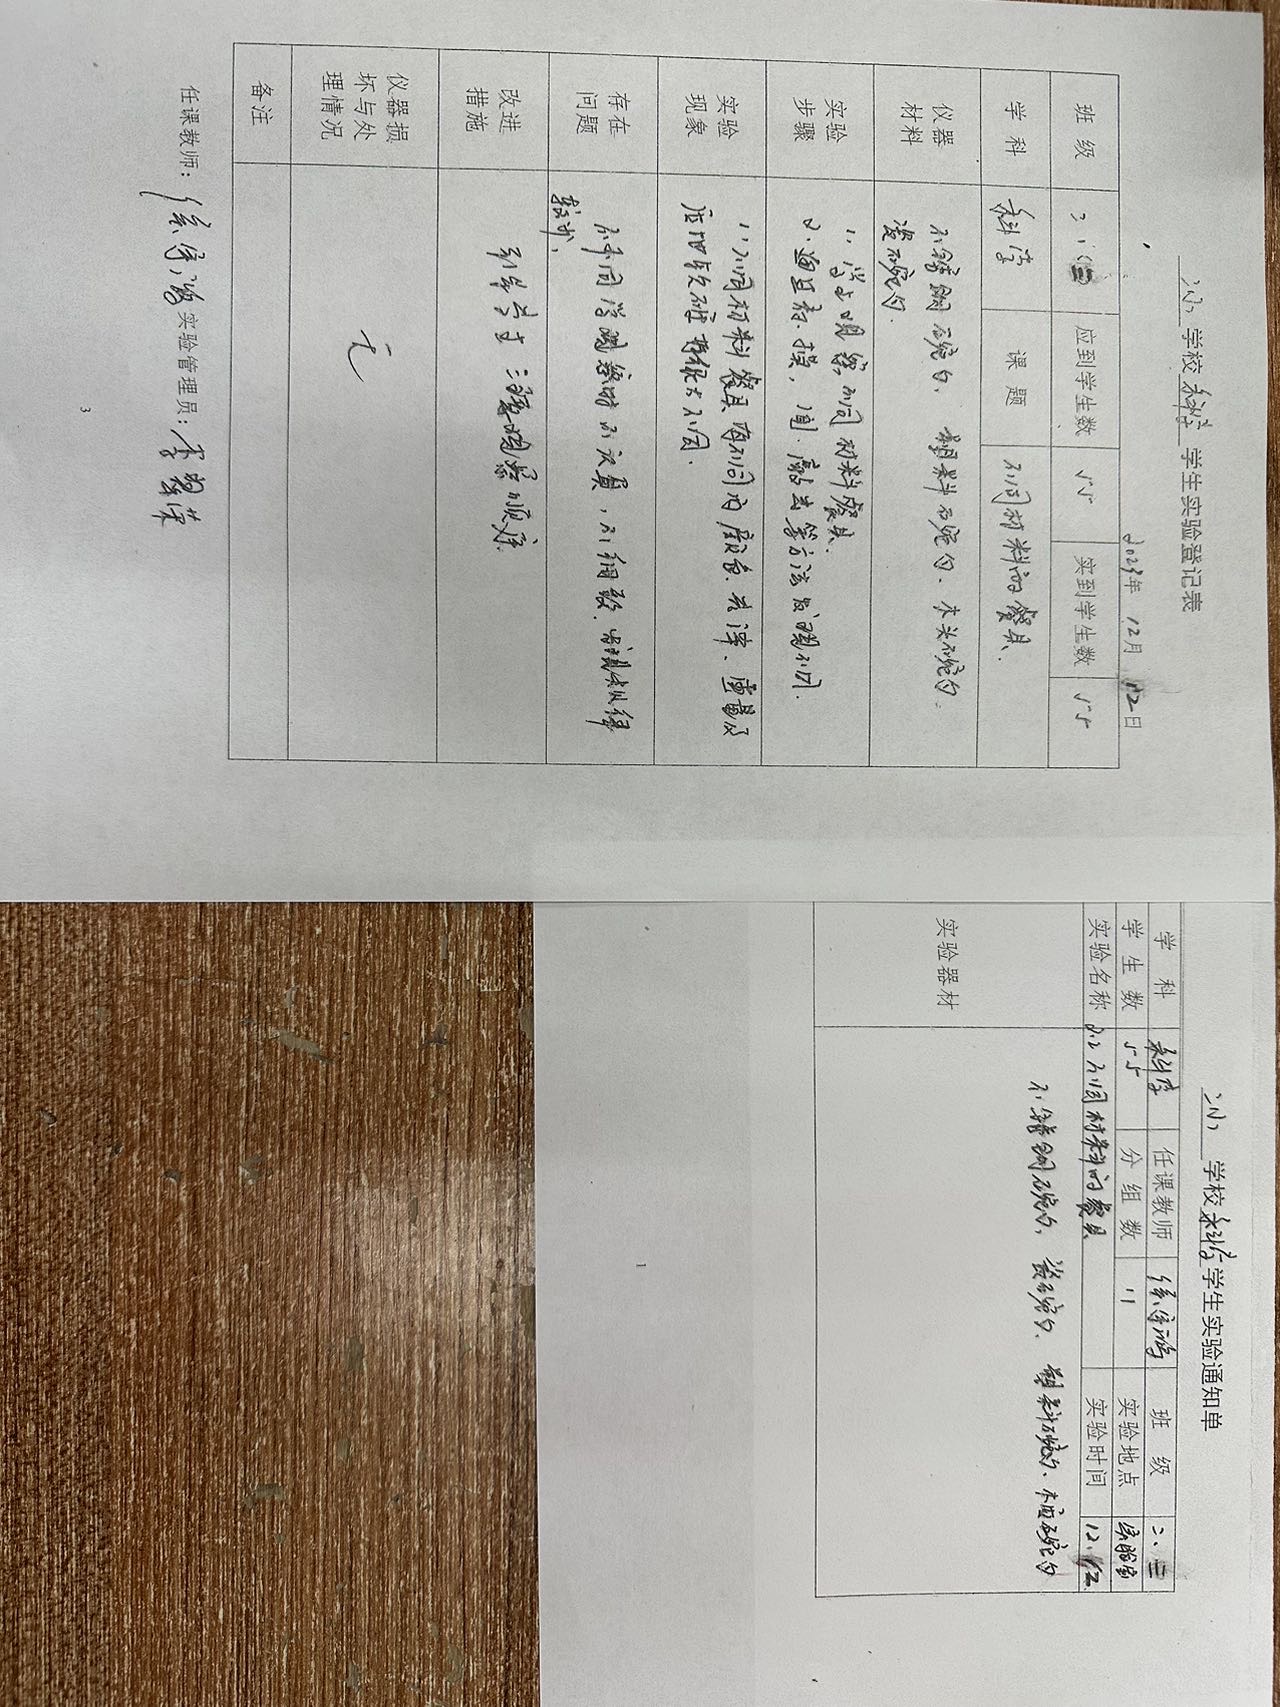 学校科学学生实验登记表
2023年 12月 12日
班 级 二、(三) 应到学生数 55 实到学生数 55
学 科 科学 课 题 不同材料的餐具
仪器材料 不锈钢碗勺、塑料碗勺、木头碗勺、
瓷碗勺.
实验步骤 1、学生观察不同材料餐具.
2、通过看、摸、闻、敲击等方法发现不同.
实验现象 1、不同材料餐具有不同的颜色、光泽、重量及
软硬有很大不同.
存在问题 不同学观察时不认真,不细致.
较少.
改进措施 观察顺序.
仪器损坏与处理情况 无
备注
任课教师: 实验管理员:
3
学校科学学生实验通知单
学 科 科学 任课教师 班 级 二、三
学 生 数 55 分 组 数 11 实验地点 实验室
实验名称 2.2 不同材料的餐具 实验时间 12.12
实验器材 不锈钢碗勺、瓷碗勺、塑料碗勺、木质碗勺
1